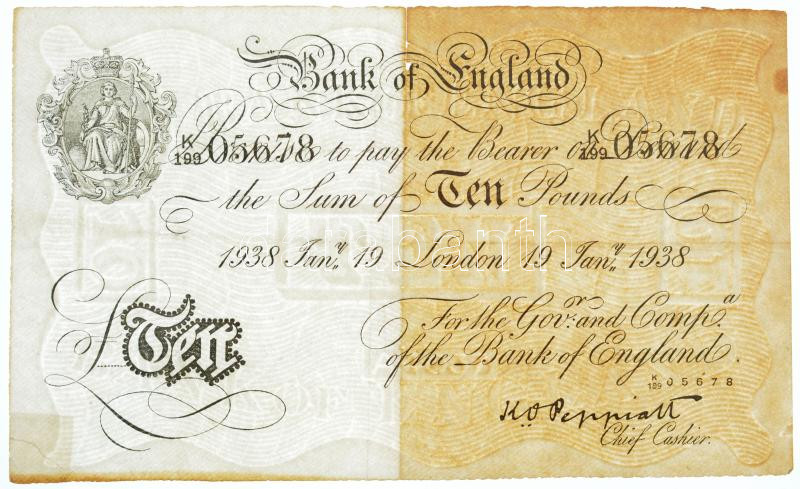 Bank of England
K/199 05678 K/199 05678
Promise to pay the Bearer on Demand
the Sum of Ten Pounds
1938 Jany. 19 London 19 Jany. 1938
For the Govr. and Compa.
of the Bank of England.
£Ten
K/199 05678
K O Peppiatt
Chief Cashier.